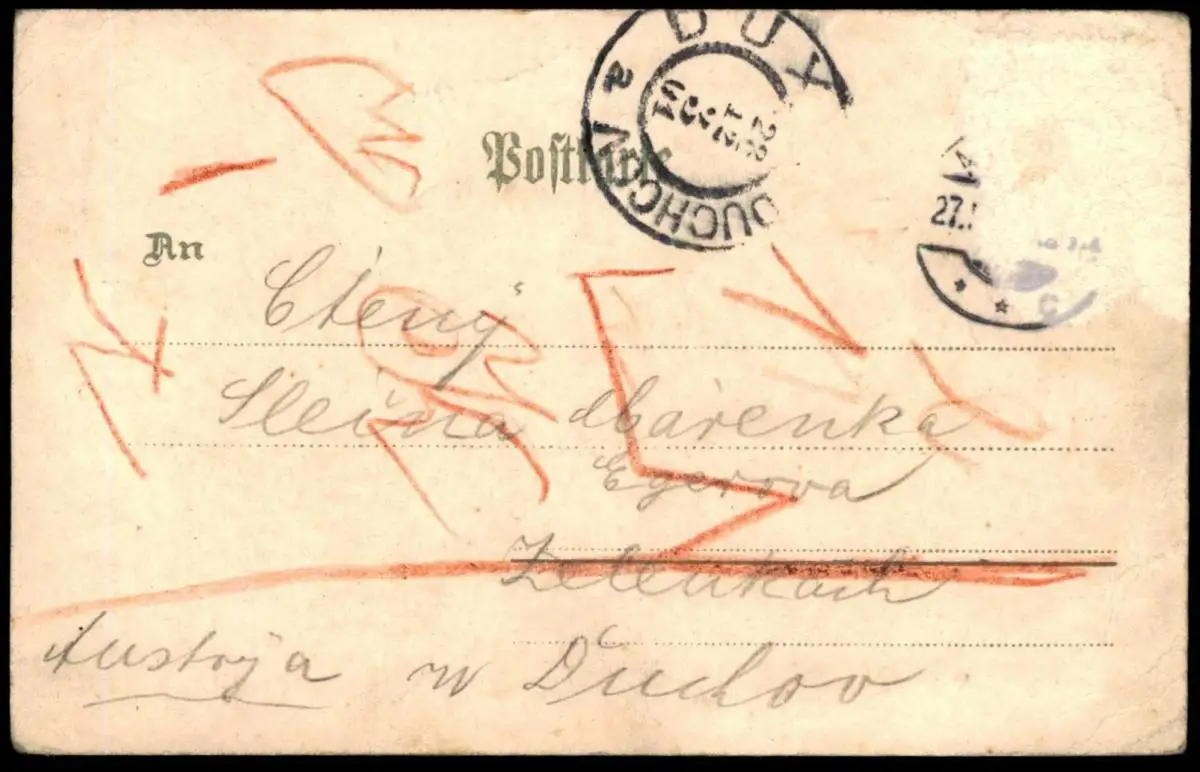 DUX
DUCHCOV a
27.
Postkarte
An
Ctěny
Slečna Mařenka
Egerova
Zelenkách
Austrja w Duchov